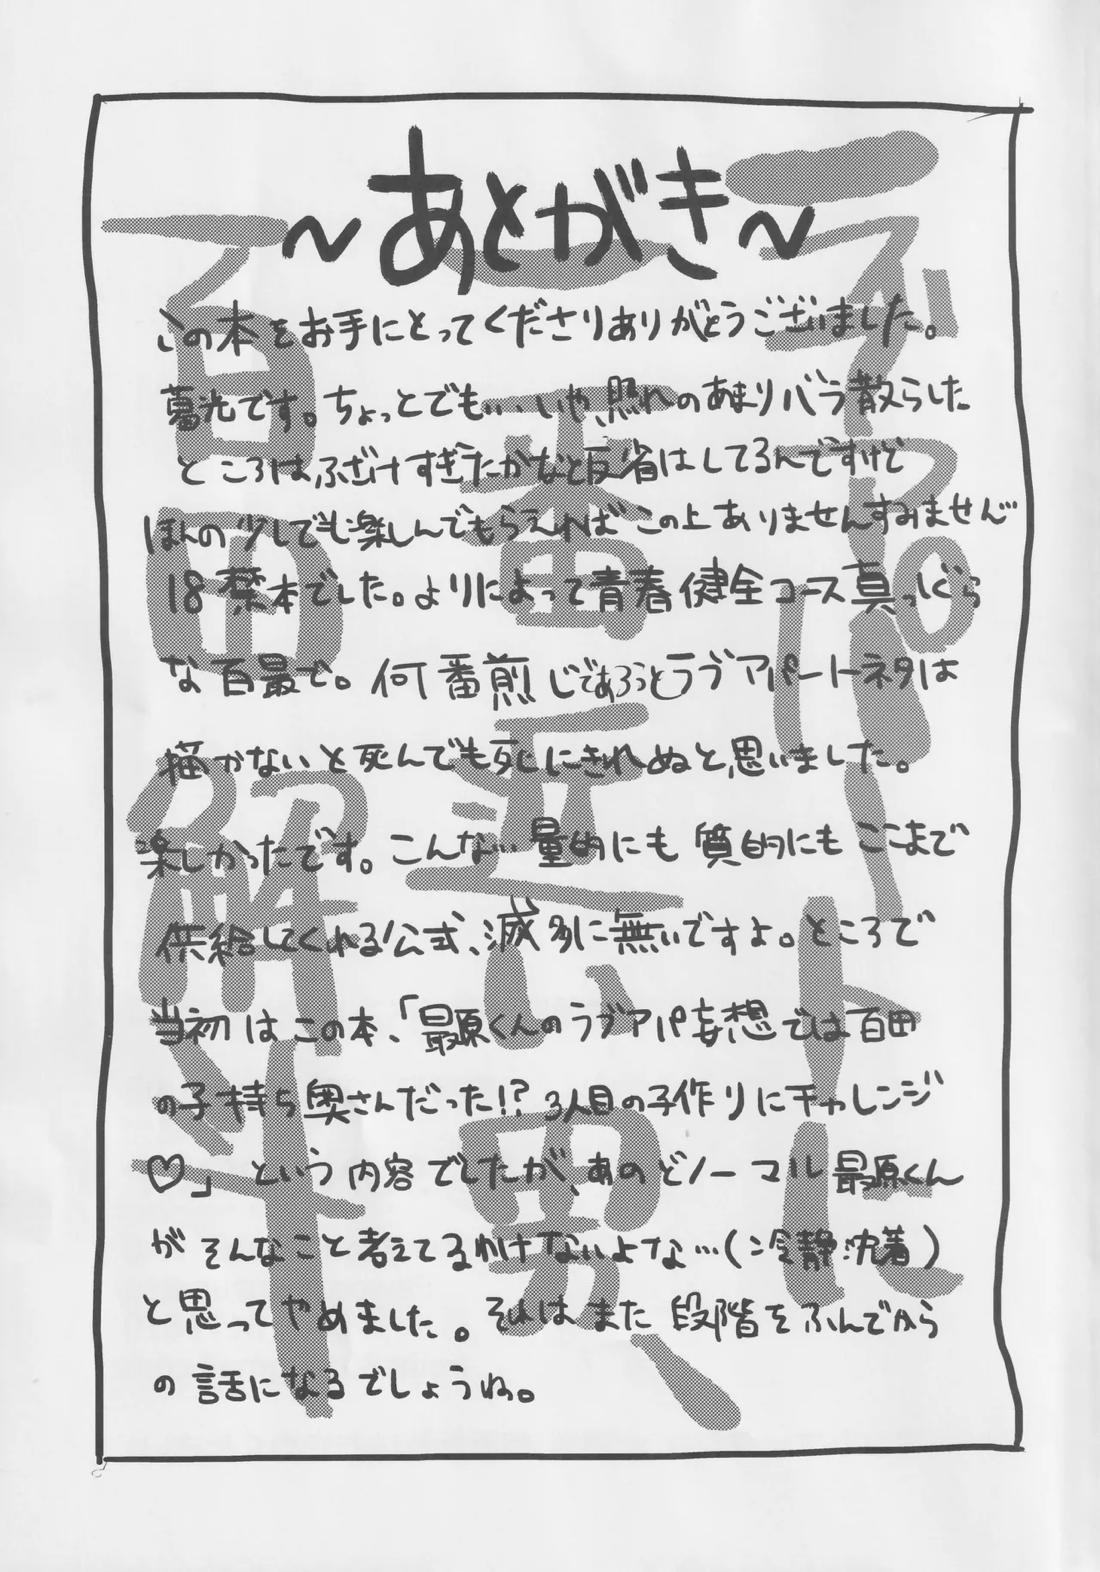 ～あとがき～
この本をお手にとってくださりありがとうございました。
暮光です。ちょっとでも…いや、照れのあまりバラ散らした
ところはふざけすぎたかなと反省はしてるんですけど
ほんの少しでも楽しんでもらえればこの上ありませんすみません
18禁本でした。よりによって青春健全コース真っしぐら
な百最で。何番煎じであろうとラブアパートネタは
描かないと死んでも死にきれぬと思いました。
楽しかったです。こんな…量的にも質的にもここまで
供給してくれる公式、滅多に無いですよ。ところで
当初はこの本、「最原くんのラブアパ妄想では百田
の子持ち奥さんだった!?3人目の子作りにチャレンジ
♡」という内容でしたが、あのどノーマル最原くん
がそんなこと考えてるわけないよな…（冷静沈着）
と思ってやめました。それはまた段階をふんでから
の話になるでしょうね。